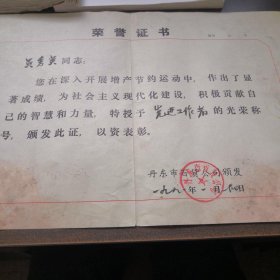 荣誉证书
同志：
您在深入开展增产节约运动中，作出了显
著成绩，为社会主义现代化建设，积极贡献自
己的智慧和力量，特授予先进工作者的光荣称
号，颁发此证，以资表彰。
丹东市百货公司颁发
一九九一年一月 日